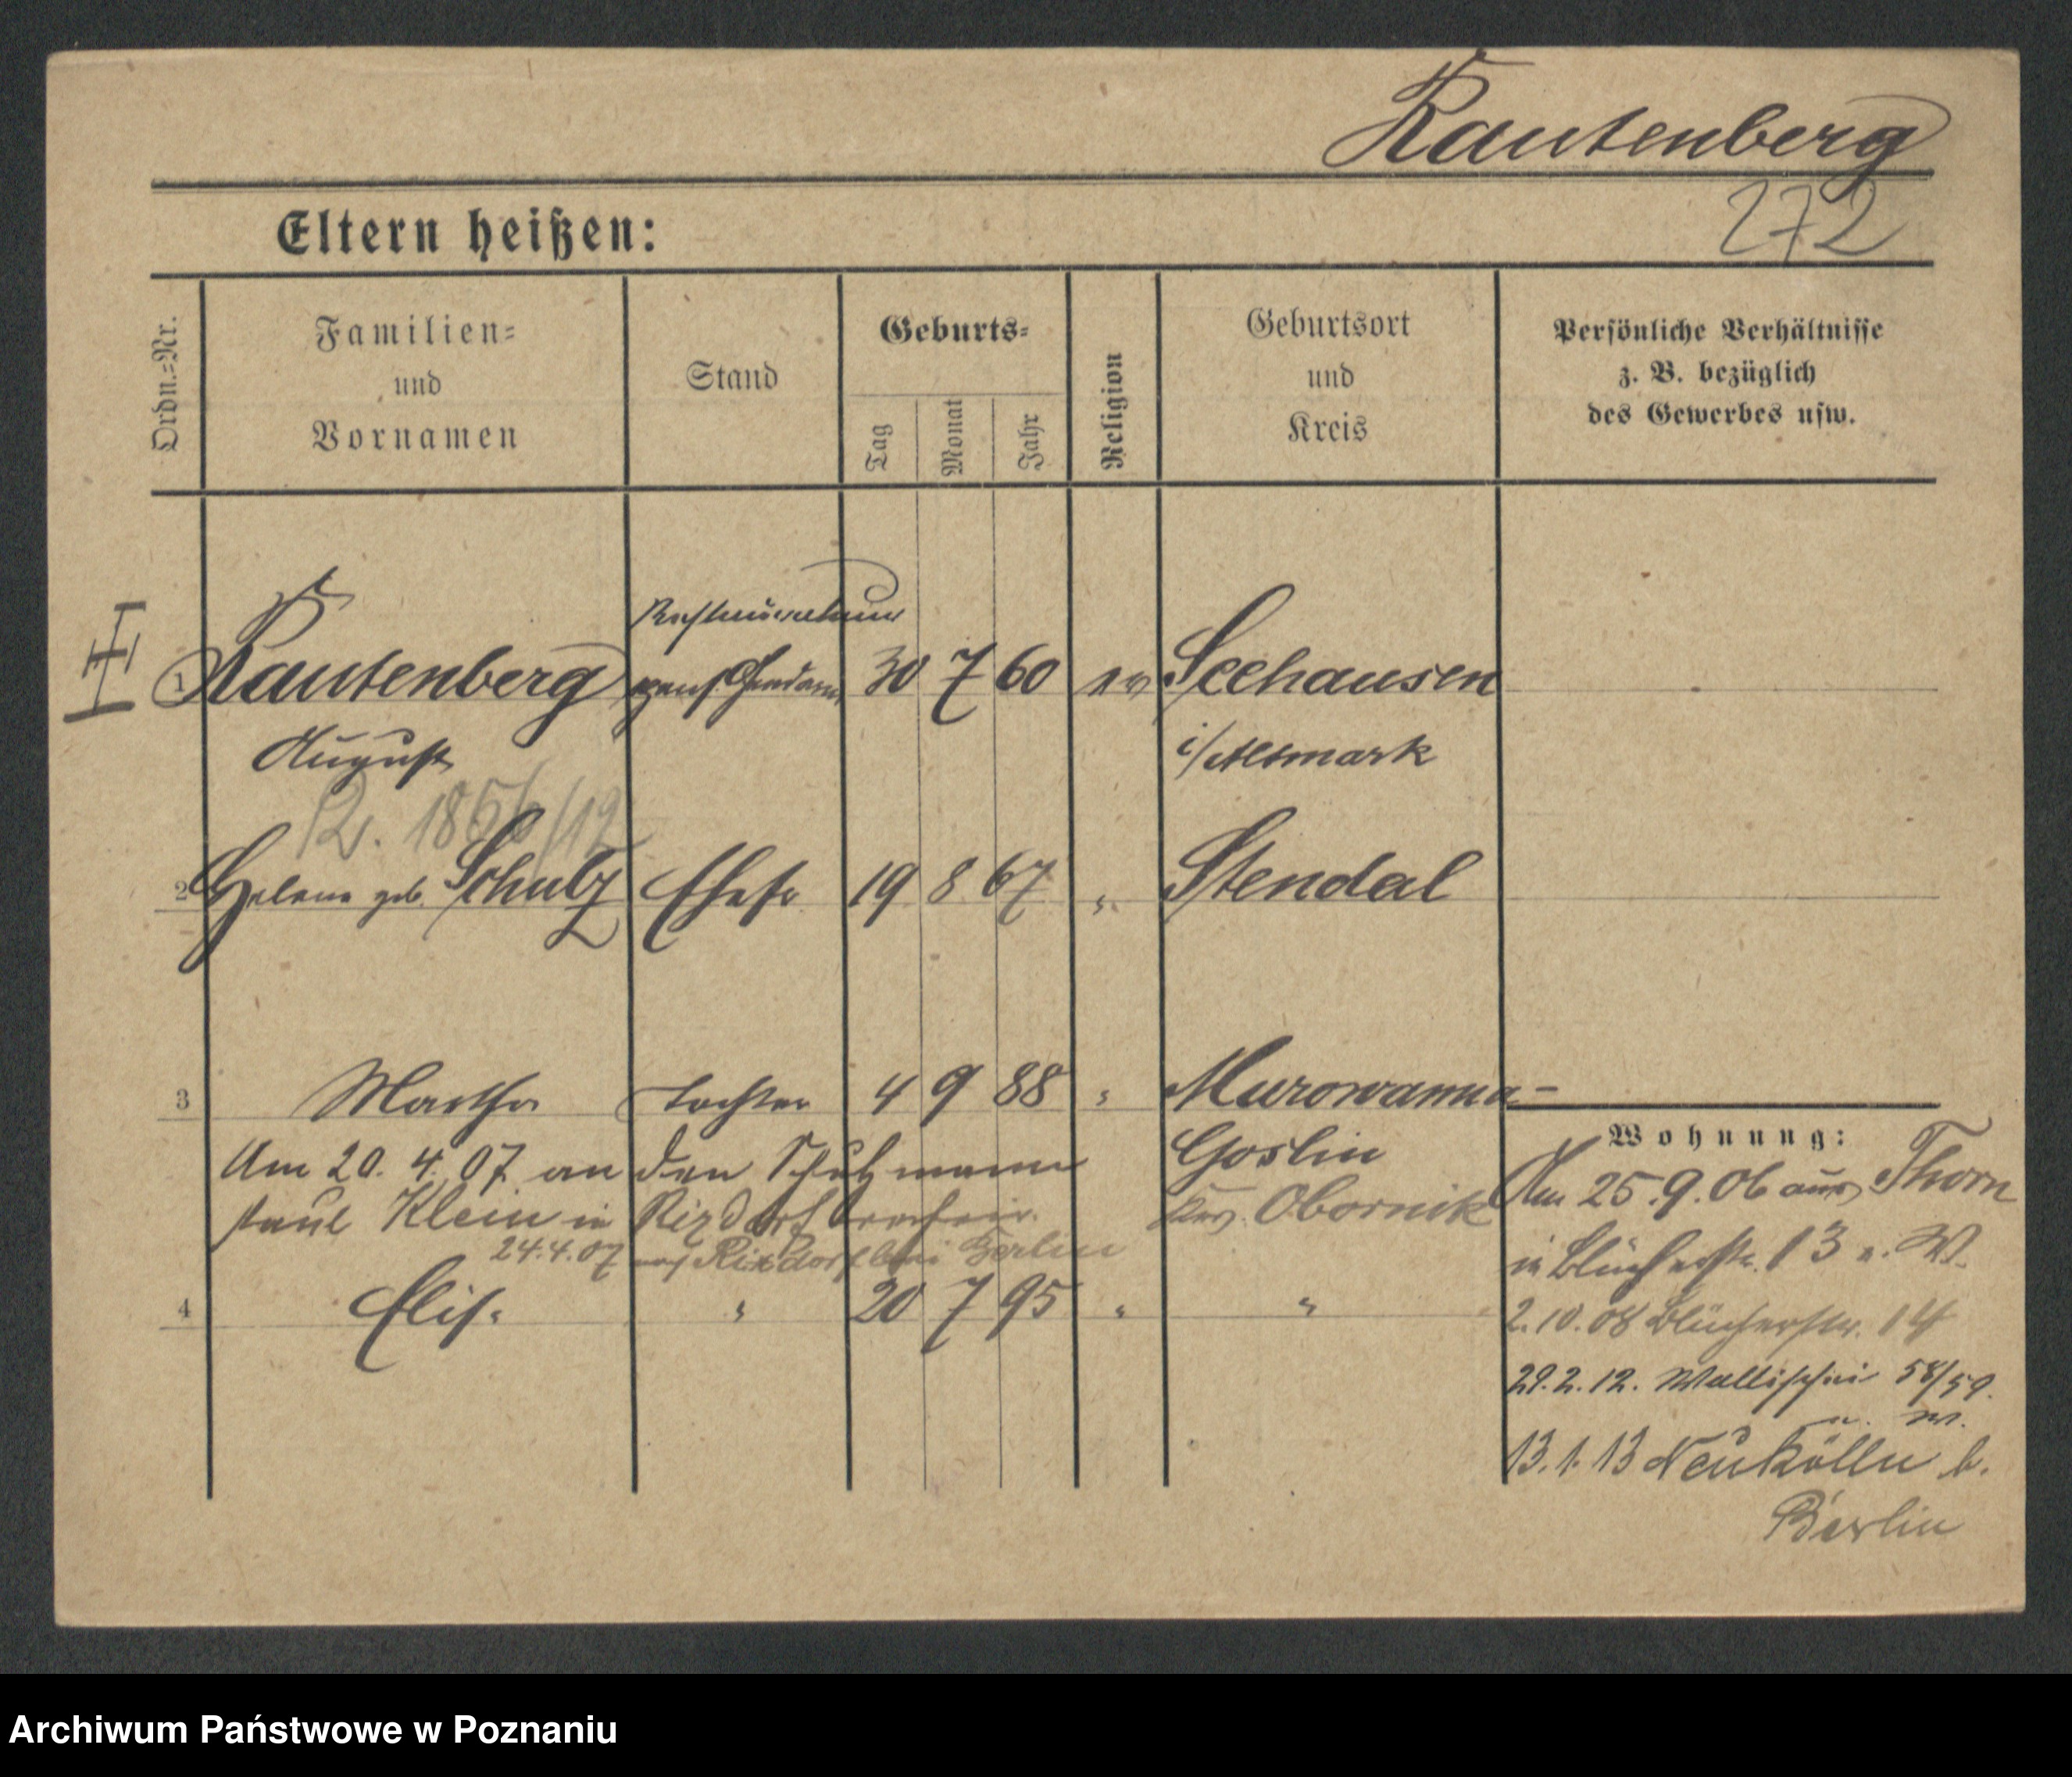 Rautenberg
272
Eltern heißen:
Ordn.-Nr.
Familien-
und
Vornamen
Stand
Geburts-
Tag
Monat
Jahr
Religion
Geburtsort
und
Kreis
Persönliche Verhältnisse
z. B. bezüglich
des Gewerbes usw.
II
1 Rautenberg pens. Gendarm 30 7 60 ev Seehausen
August i/Altmark
R. 1856/12
2 Helene geb. Schulz Ehefr 19 8 67 " Stendal
3 Martha Tochter 4 9 88 " Murowanna-
Goslin
Krs. Obornik
Am 20.4.07 an den Schutzmann
Paul Klein in Rixdorf
24.4.07 nach Rixdorf bei Berlin
4 Elise " 20 7 95 " "
Wohnung:
Am 25.9.06 aus Thorn
in Blücherstr. 13 n. W.
2.10.08 Blücherstr. 14
29.2.12. Wallischei 58/59.
n. W.
13.1.13 Neukölln b.
Berlin
Archiwum Państwowe w Poznaniu